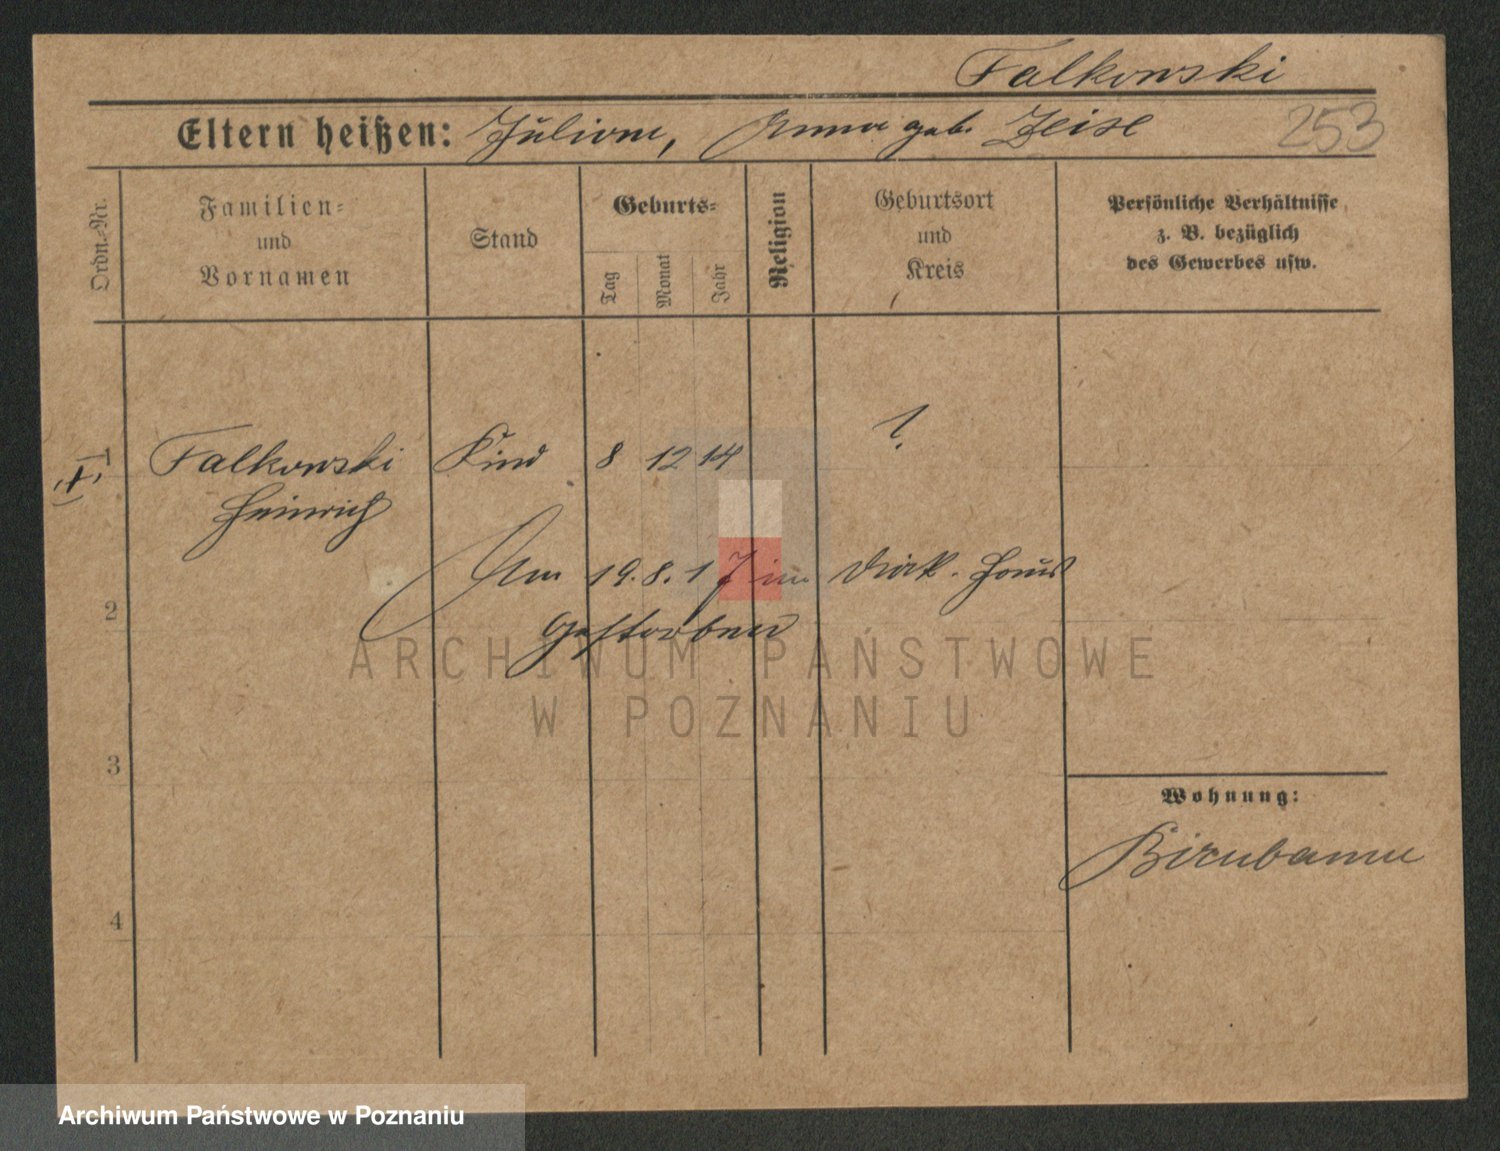 Falkowski
Eltern heißen: Julian, Anna geb. Zeise
253
Ordn.-Nr.
Familien-
und
Vornamen
Stand
Geburts-
Tag
Monat
Jahr
Religion
Geburtsort
und
Kreis
Persönliche Verhältnisse
z. B. bezüglich
des Gewerbes usw.
1
Falkowski Kind 8 12 14 ?
Heinrich
Am 19.8.17 im Diak. Haus
2
gestorben
ARCHIWUM PAŃSTWOWE
W POZNANIU
3
Wohnung:
Birnbaum
4
Archiwum Państwowe w Poznaniu